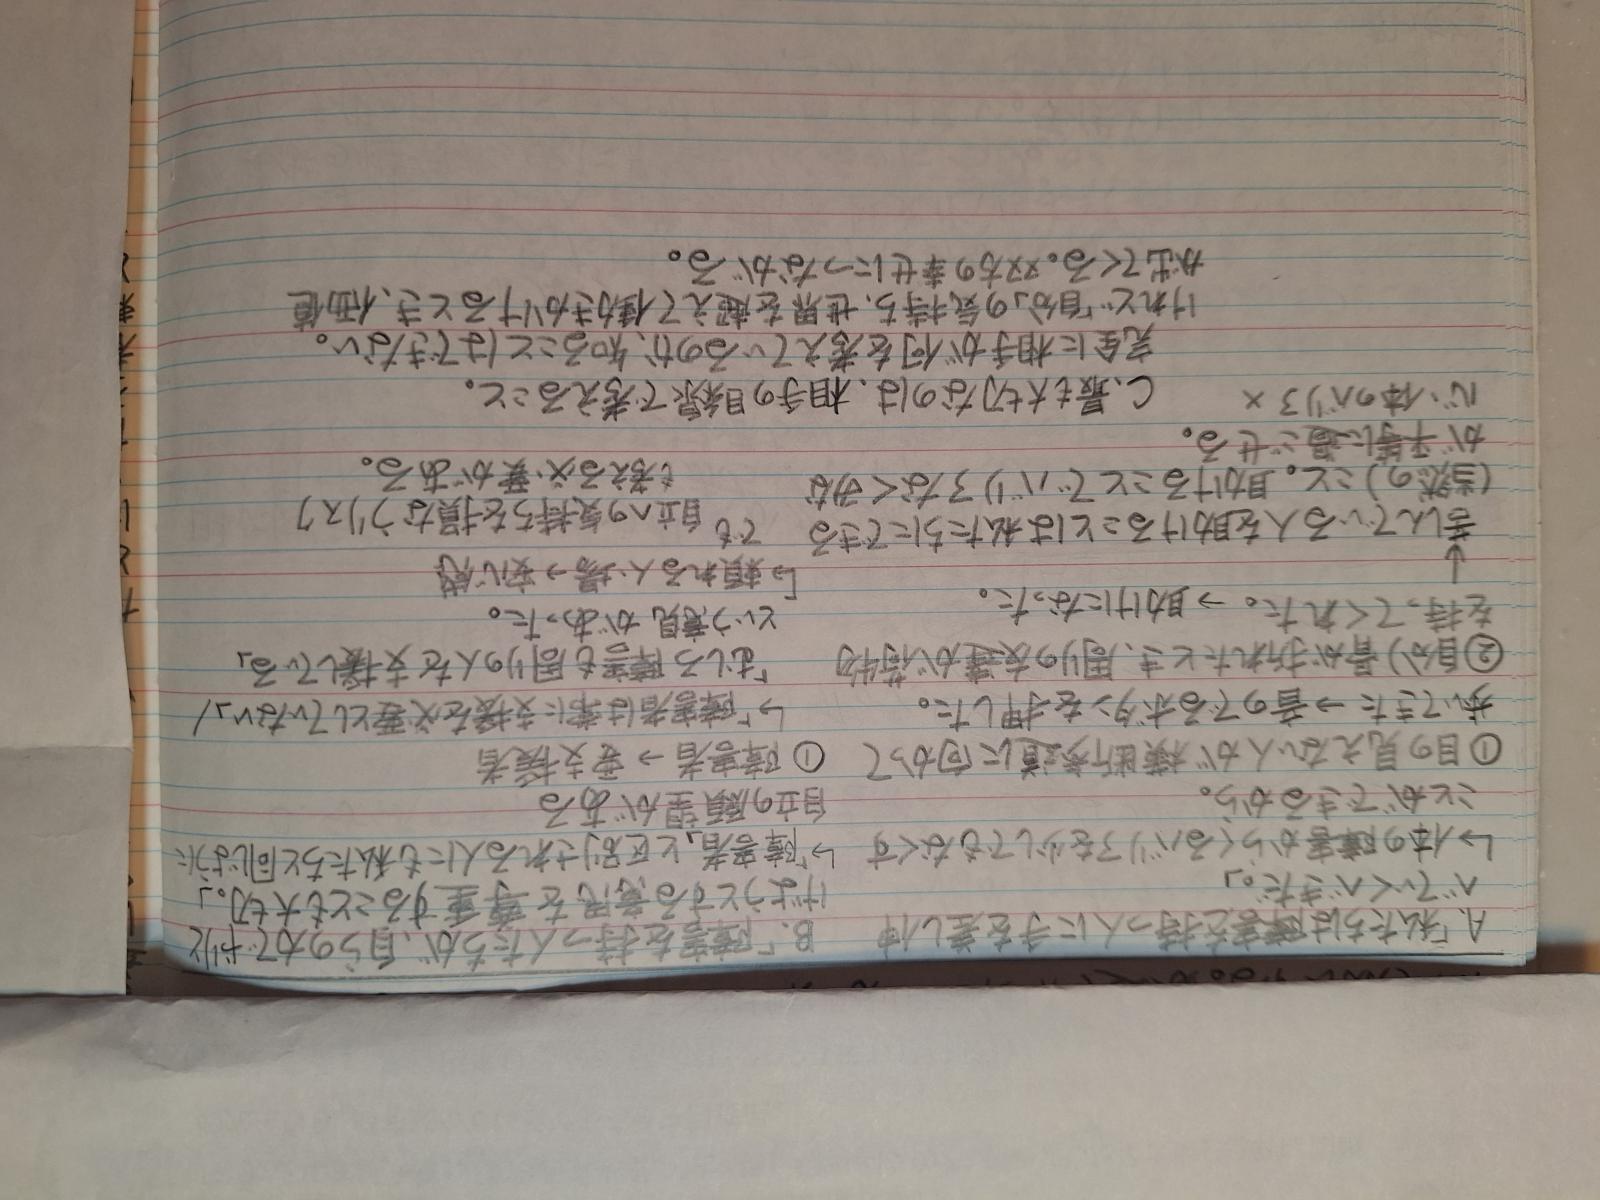 A.「私たちは障害を持つ人に手を差し伸
べていくべきだ。」
↳体の障害からくるバリアを少しでもなくす
ことができるから。
①目の見えない人が横断歩道に向かって
歩いてきた→音のでるボタンを押した。
②自分)骨が折れたとき、周りの友達が荷物
を持ってくれた。→助けになった。
↓
苦しんでいる人を助けることは私たちにできる
(当然の)こと。助けることでバリアなくみな
が平等に過ごせる。
心・体のバリア×
B.「障害を持つ人たちが、自らの力で
げようとする意思を尊重することも大切。」
↳「障害者」と区別される人にも私たちと同じように
自立の願望がある
①障害者→要支援者
↳「障害者は常に支援を必要としていない」/
「むしろ障害も周りの人を支援している」
という意見があった。
↳頼れる人・場→安心感
でも 自立への気持ちを損なうリスク
も考える必要がある。
C.最も大切なのは、相手の目線で考えること。
完全に相手が何を考えているのか、知ることはできない。
けれど「自分」の気持ち、世界を超えて働きかけるとき、価値
が出てくる。双方の幸せにつながる。